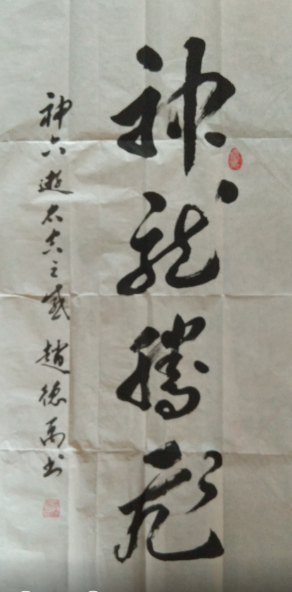 神龙腾飞
神六遨太空之感 趙德禹书